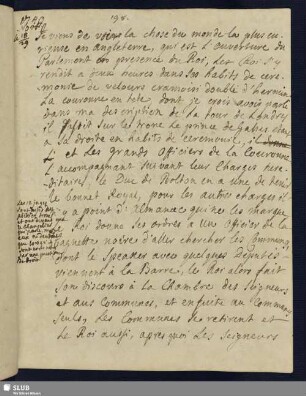 198.
Je viens de voir la chose du monde la plus cu-
rieuse en Angleterre, qui est l'ouverture du
Parlement en presence du Roi, Le Roi s'y
rendit a deux heures dans son habits de cere-
monie de velours cramoisi doublé d'hermine
La couronne en tete, dont je vous avois parlé
dans ma description de la tour de Londres,
il etoit sur les trone Le prince de Galles etant
a sa droite en habits de ceremonie, il
et Les grands Officiers de la Couronne
L'accompagnant suivant leur Charges here-
ditaires, le Duc de Bolton en a une de tenir
le bonnet Royal, pour les autres charges il
n'y a point d'Almanac qui ne les marque.
Le Roi donne ses ordres a une Officier de la
baguette noire d'aller chercher les Communes
dont le Speaker avec quelques Deputés
viennent à la Barre, le Roi alors fait
son discours à la Chambre des Seigneurs
et aux Communes, et ensuite aux Communes
seuls, Les Communes se retirent et
Le Roi aussi, apres quoi Les Seigneurs
SLUB
Wir führen Wissen.